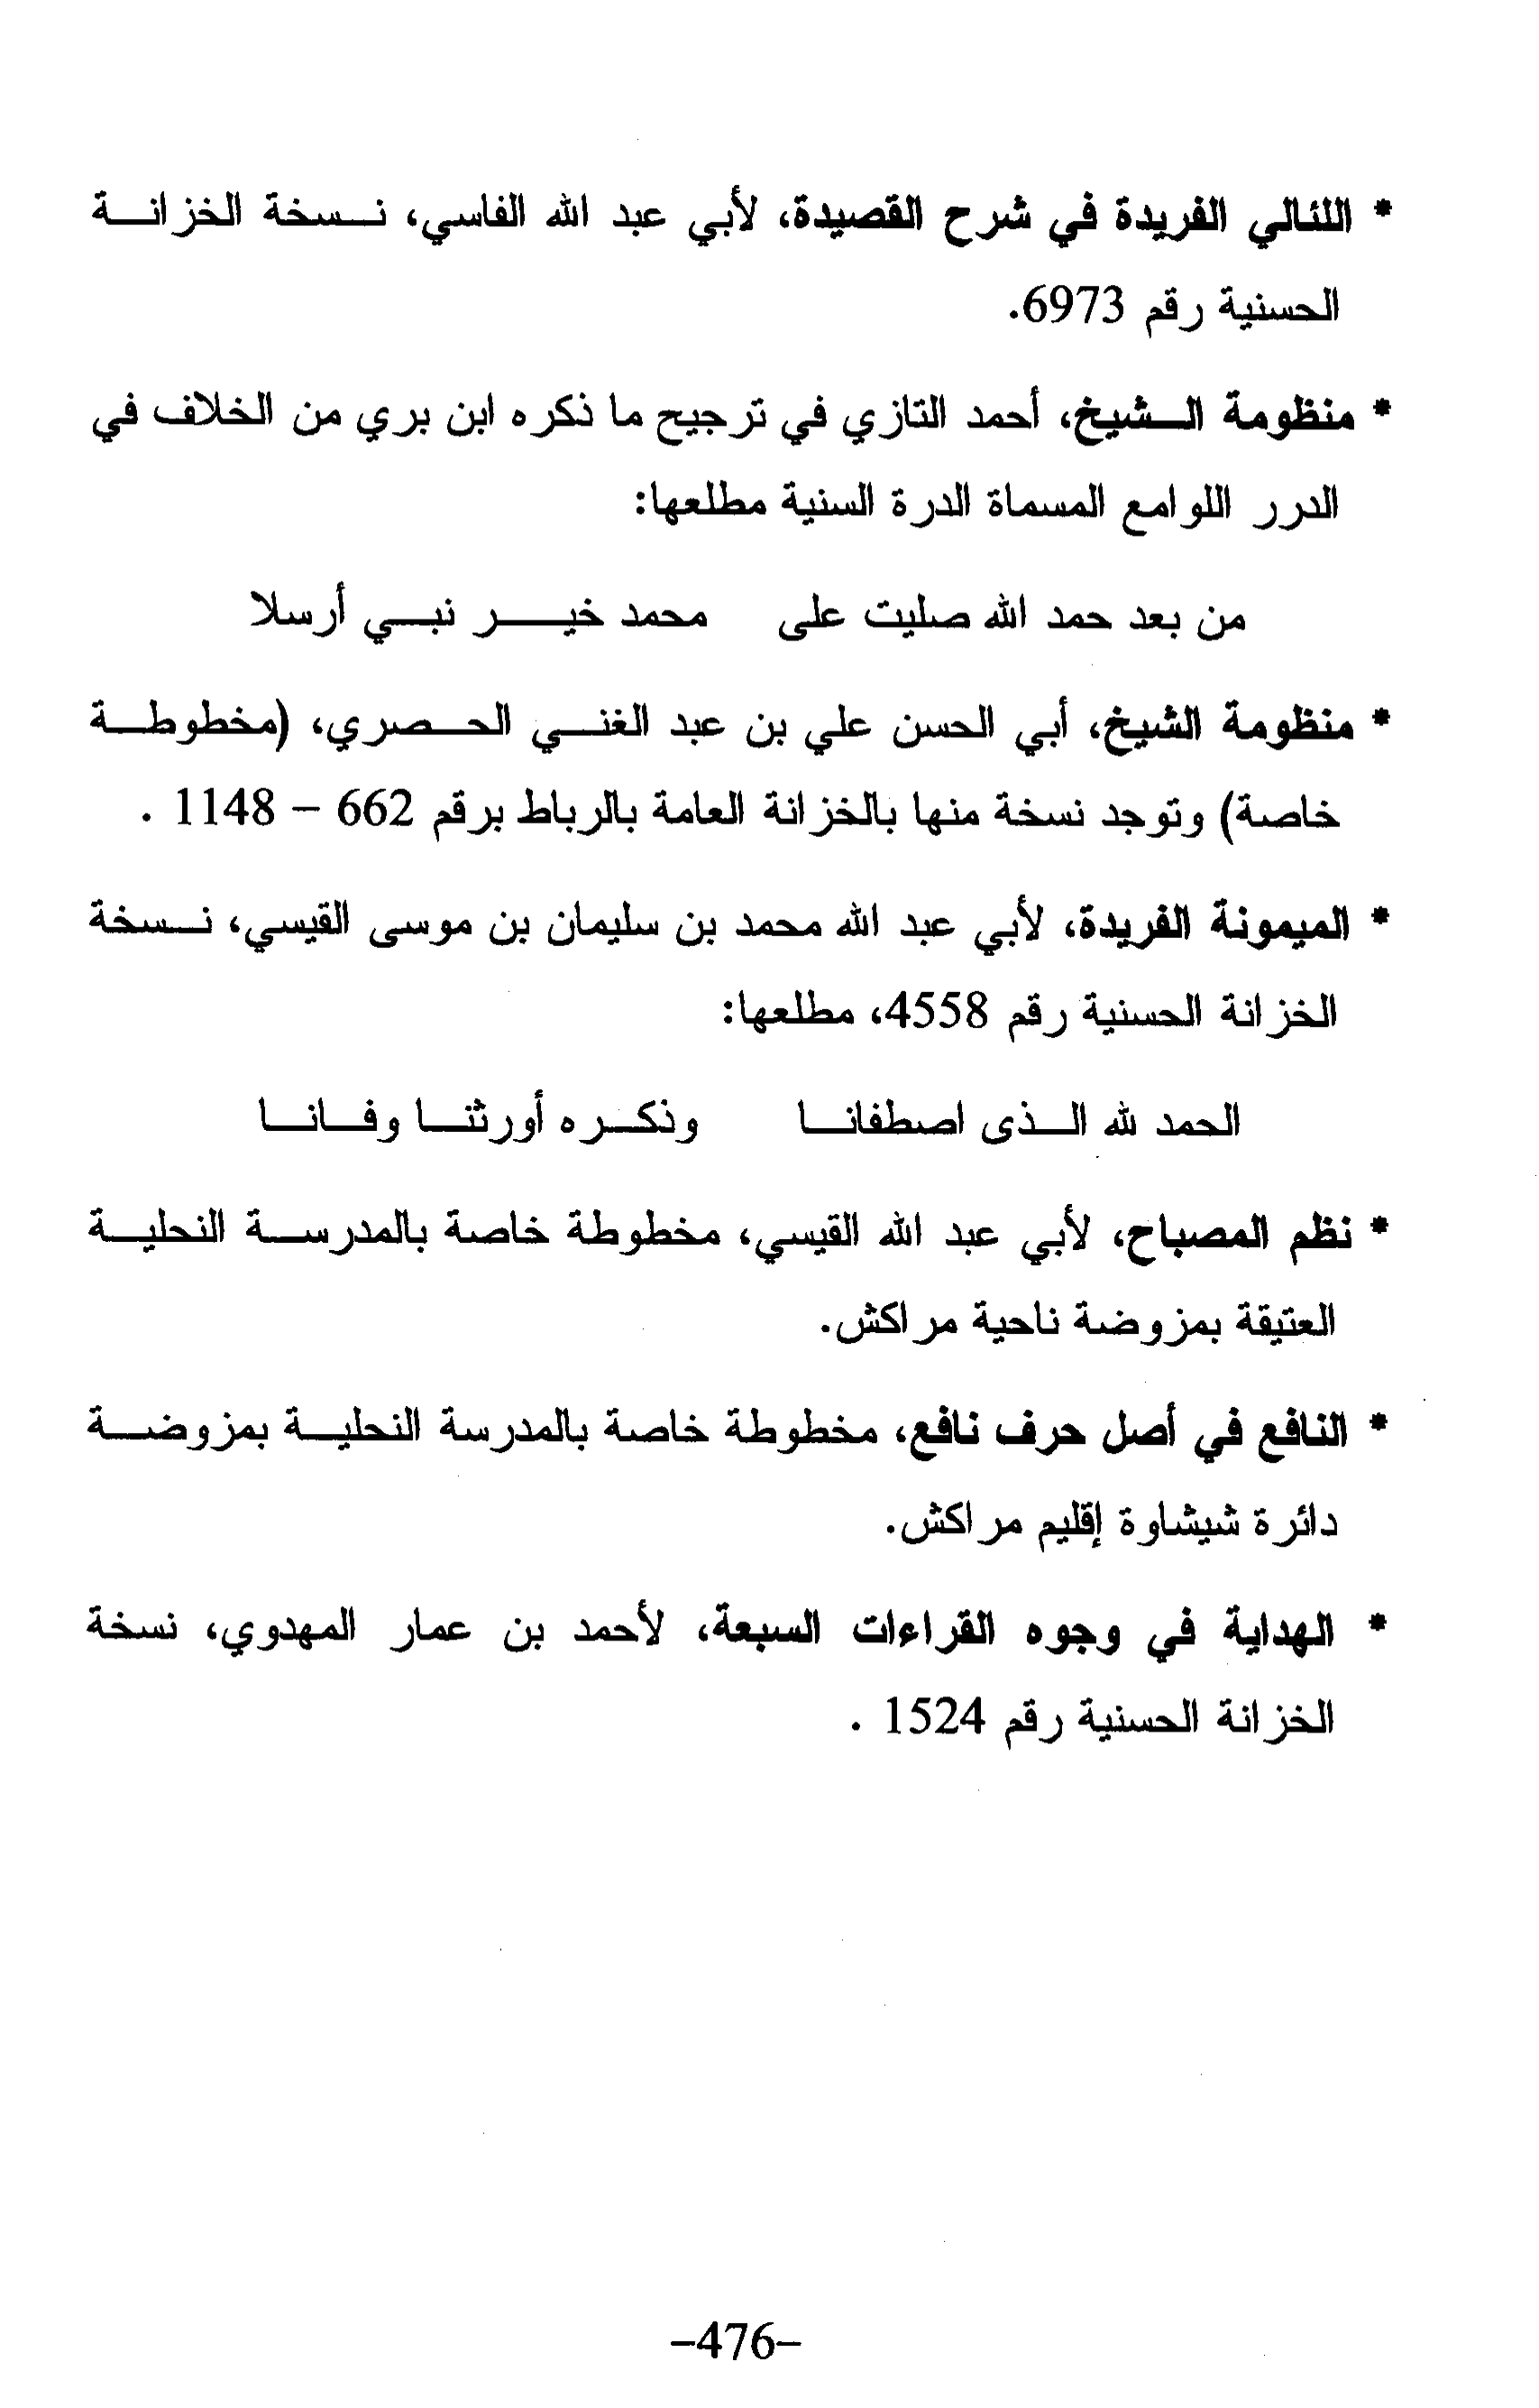 * اللئالي الفريدة في شرح القصيدة، لأبي عبد الله الفاسي، نسخة الخزانة
الحسنية رقم 6973.
* منظومة الشيخ، أحمد التازي في ترجيح ما ذكره ابن بري من الخلاف في
الدرر اللوامع المسماة الدرة السنية مطلعها:
من بعد حمد الله صليت على محمد خير نبي أرسلا
* منظومة الشيخ، أبي الحسن علي بن عبد الغني الحصري، (مخطوطة
خاصة) وتوجد نسخة منها بالخزانة العامة بالرباط برقم 662 – 1148 .
* الميمونة الفريدة، لأبي عبد الله محمد بن سليمان بن موسى القيسي، نسخة
الخزانة الحسنية رقم 4558، مطلعها:
الحمد لله الذى اصطفانا وذكره أورثنا وفانا
* نظم المصباح، لأبي عبد الله القيسي، مخطوطة خاصة بالمدرسة النحلية
العتيقة بمزوضة ناحية مراكش.
* النافع في أصل حرف نافع، مخطوطة خاصة بالمدرسة النحلية بمزوضة
دائرة شيشاوة إقليم مراكش.
* الهداية في وجوه القراءات السبعة، لأحمد بن عمار المهدوي، نسخة
الخزانة الحسنية رقم 1524 .
–476–